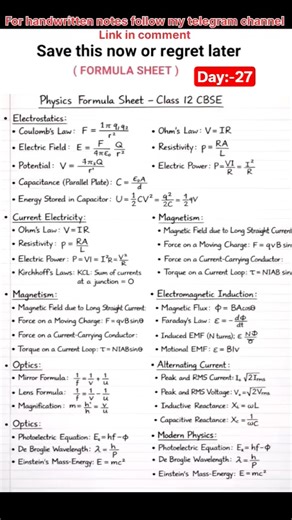 For handwritten notes follow my telegram channel
Link in comment
Save this now or regret later
( FORMULA SHEET )
Day:-27
Physics Formula Sheet – Class 12 CBSE
• Electrostatics:
• Coulomb's Law: F = 1π q₁q₂ / r²
• Electric Field: E = F / 4πε₀ Q / r²
• Potential: V = 4πₐQ / r'
• Capacitance (Parallel Plate): C = ε₀A / d
• Energy Stored in Capacitor: U = ½CV² = q²/2C = ½qV
• Ohm's Law: V = IR
• Resistivity: p = RA / L
• Electric Power: P = VI / R = I² / R
• Current Electricity:
• Ohm's Law: V = IR
• Resistivity: p = RA / L
• Electric Power: P = VI = I²R = V² / R
• Kirchhoff's Laws: KCL: Sum of currents
at a junction = 0
• Magnetism:
• Magnetic Field due to Long Straight Current
• Force on a Moving Charge: F = qvB sin
• Force on a Current-Carrying Conductor:
• Torque on a Current Loop: τ = NIAB sin
• Magnetism:
• Magnetic Field due to Long Straight Current:
• Force on a Moving Charge: F = qvBsinθ
• Force on a Current-Carrying Conductor:
• Torque on a Current Loop: τ = NIABsinθ
• Electromagnetic Induction:
• Magnetic Flux: Φ = BAcosθ
• Faraday's Law: ε = -dΦ / dt
• Induced EMF (N turns): ε
• Motional EMF: ε = Blv
• Optics:
• Mirror Formula: 1/f = 1/v + 1/u
• Lens Formula: 1/f = 1/v - 1/u
• Magnification: m = h'/h = v/u
• Alternating Current:
• Peak and RMS Current:
• Peak and RMS Voltage: V₀ = √2Vrms
• Inductive Reactance: Xₗ = ωL
• Capacitive Reactance: = 1 / ωC
• Optics:
• Photoelectric Equation: Eₖ = hf – ϕ
• De Broglie Wavelength: λ = h / p
• Einstein's Mass-Energy: E = mc²
• Modern Physics:
• Photoelectric Equation: Eₖ = hf – ϕ
• De Broglie Wavelength: λ = h / p
• Einstein's Mass-Energy: E = mc²